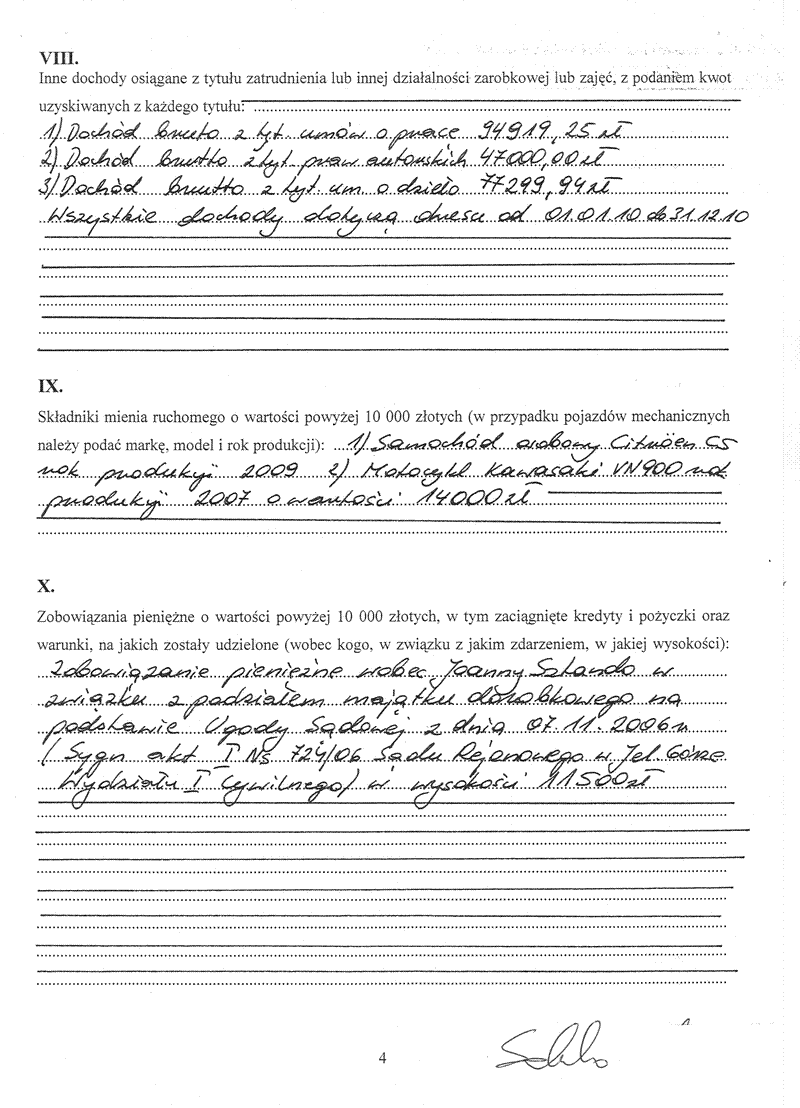 VIII.
Inne dochody osiągane z tytułu zatrudnienia lub innej działalności zarobkowej lub zajęć, z podaniem kwot
uzyskiwanych z każdego tytułu:
1) Dochód brutto z tyt. umów o pracę 94919,25 zł
2) Dochód brutto z tyt praw autorskich 47000,00 zł
3) Dochód brutto z tyt. um. o dzieło 77299,94 zł
Wszystkie dochody dotyczą okresu od 01.01.10 do 31.12.10
IX.
Składniki mienia ruchomego o wartości powyżej 10 000 złotych (w przypadku pojazdów mechanicznych
należy podać markę, model i rok produkcji): 1) Samochód osobowy Citröen C5
rok produkcji 2009 2) Motocykl Kawasaki VN900 rok
produkcji 2007 o wartości 14000 zł
X.
Zobowiązania pieniężne o wartości powyżej 10 000 złotych, w tym zaciągnięte kredyty i pożyczki oraz
warunki, na jakich zostały udzielone (wobec kogo, w związku z jakim zdarzeniem, w jakiej wysokości):
Zobowiązanie pieniężne wobec Joanny Sztando w
związku z podziałem majątku dorobkowego na
podstawie Ugody Sądowej z dnia 07.11.2006 r
(Sygn akt I Ns 724/06 Sądu Rejonowego w Jel. Górze
Wydziału I Cywilnego) w wysokości 11500 zł
4